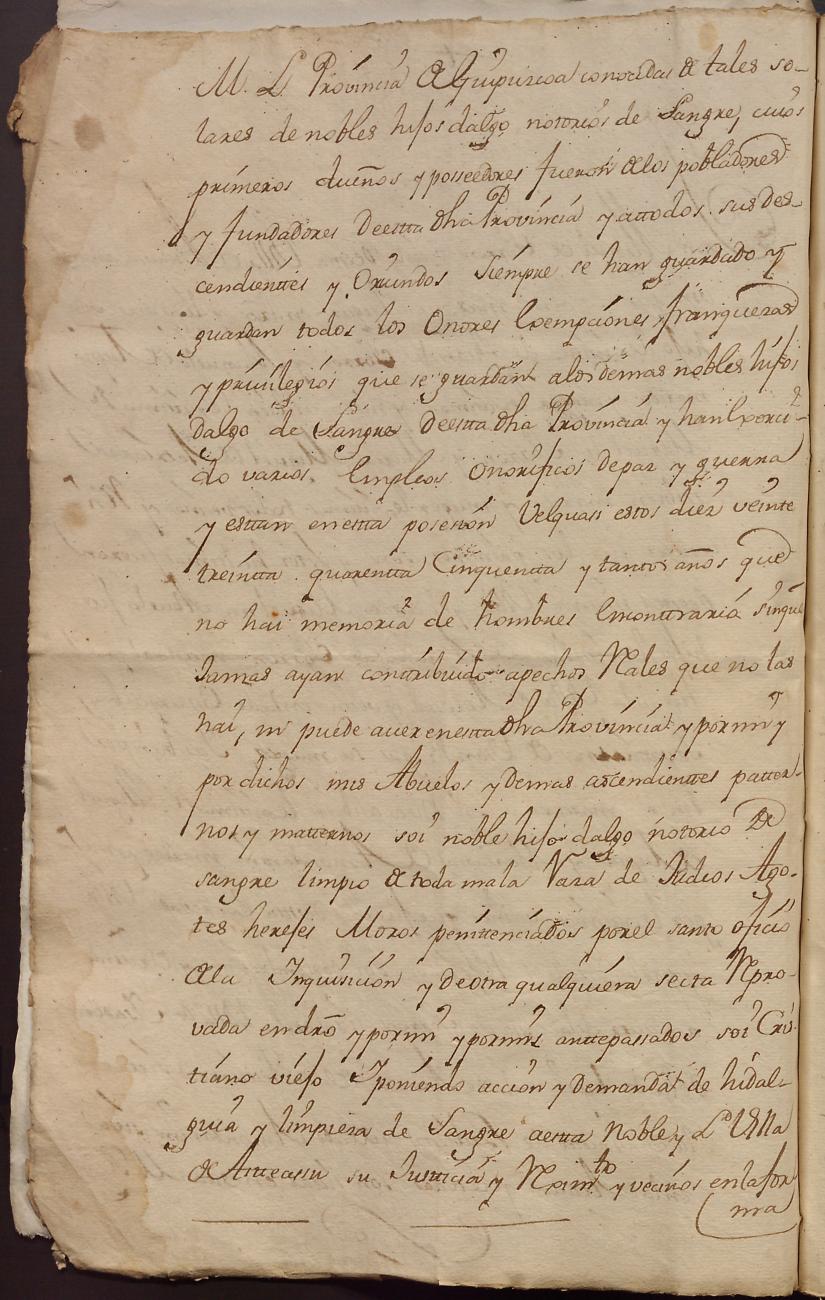 M. L. Provincia de Guipuzcoa conocidas de tales so-
lares de nobles hijos dalgo notorios de Sangre, cuios
primeros dueños y posseedores fueron de los pobladores
y fundadores deestta dha Provincia y attodos sus des-
cendienttes y Oriundos siempre se han guardado y
guardan todos los Onores Exempciones, franquezas
y privilegios que se guardan alos demas nobles hijos
dalgo de Sangre deestta dha Provincia y han Exerci-
do varios Empleos Onorificos de paz y guerra
y esttan enestta posesion Velquasi estos diez veinte
treintta quarentta Cinquentta y tantos años que
no hai memoria de hombres Enconttrario sinque
Jamas ayan conttribuido apechos Rales que no las
hai, ni puede aver enestta dha Provincia y por mi y
por dichos mis Abuelos y demas ascendienttes patter-
nos y matternos soi noble hijo dalgo notorio de
sangre limpio de toda mala Raza de Judios Ago-
tes herejes Moros penittenciados porel santo oficio
dela Inquisicion y de otra qualquiera secta Repro-
vada en dro y por mi y por mis anttepassados soi Cris-
tiano viejo Y poniendo accion y demanda de hidal-
guia y limpieza de Sangre aestta Noble y Ll Villa
de Atteassu su Justticia y Regimto y vecinos en la for
ma